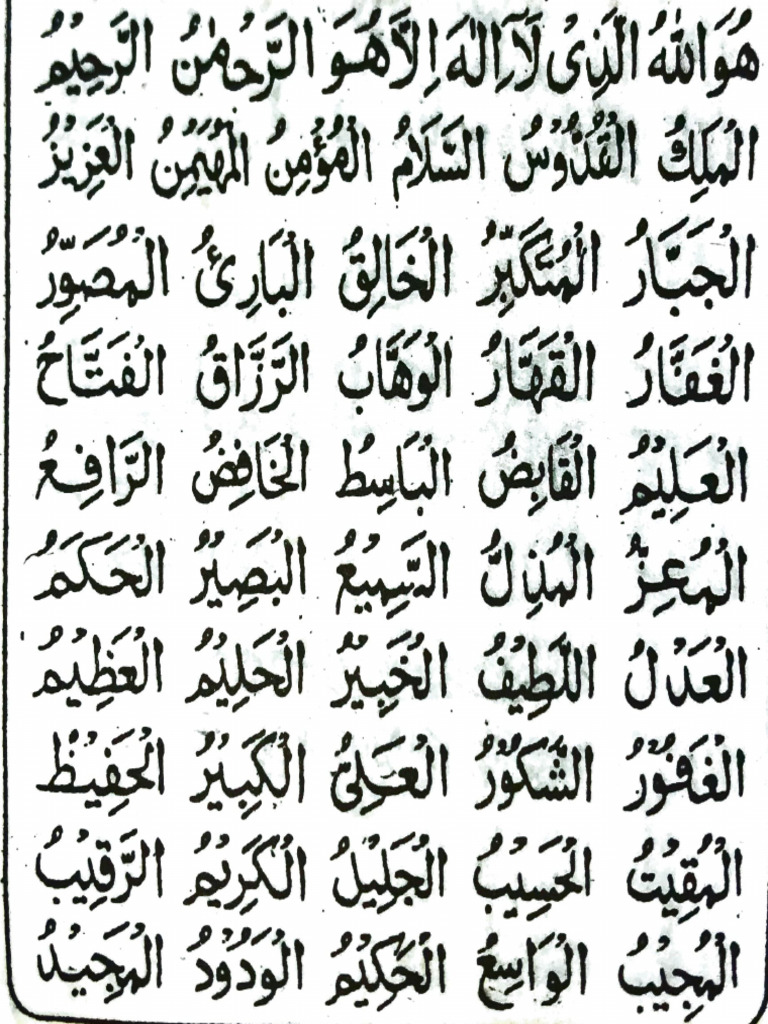 هُوَ اللهُ الَّذِىْ لَآ اِلٰهَ اِلَّا هُوَ الرَّحْمٰنُ الرَّحِيْمُ
الْمَلِكُ الْقُدُّوْسُ السَّلَامُ الْمُؤْمِنُ الْمُهَيْمِنُ الْعَزِيْزُ
الْجَبَّارُ الْمُتَكَبِّرُ الْخَالِقُ الْبَارِئُ الْمُصَوِّرُ
الْغَفَّارُ الْقَهَّارُ الْوَهَّابُ الرَّزَّاقُ الْفَتَّاحُ
الْعَلِيْمُ الْقَابِضُ الْبَاسِطُ الْخَافِضُ الرَّافِعُ
الْمُعِزُّ الْمُذِلُّ السَّمِيْعُ الْبَصِيْرُ الْحَكَمُ
الْعَدْلُ اللَّطِيْفُ الْخَبِيْرُ الْحَلِيْمُ الْعَظِيْمُ
الْغَفُوْرُ الشَّكُوْرُ الْعَلِىُّ الْكَبِيْرُ الْحَفِيْظُ
الْمُقِيْتُ الْحَسِيْبُ الْجَلِيْلُ الْكَرِيْمُ الرَّقِيْبُ
الْمُجِيْبُ الْوَاسِعُ الْحَكِيْمُ الْوَدُوْدُ الْمَجِيْدُ